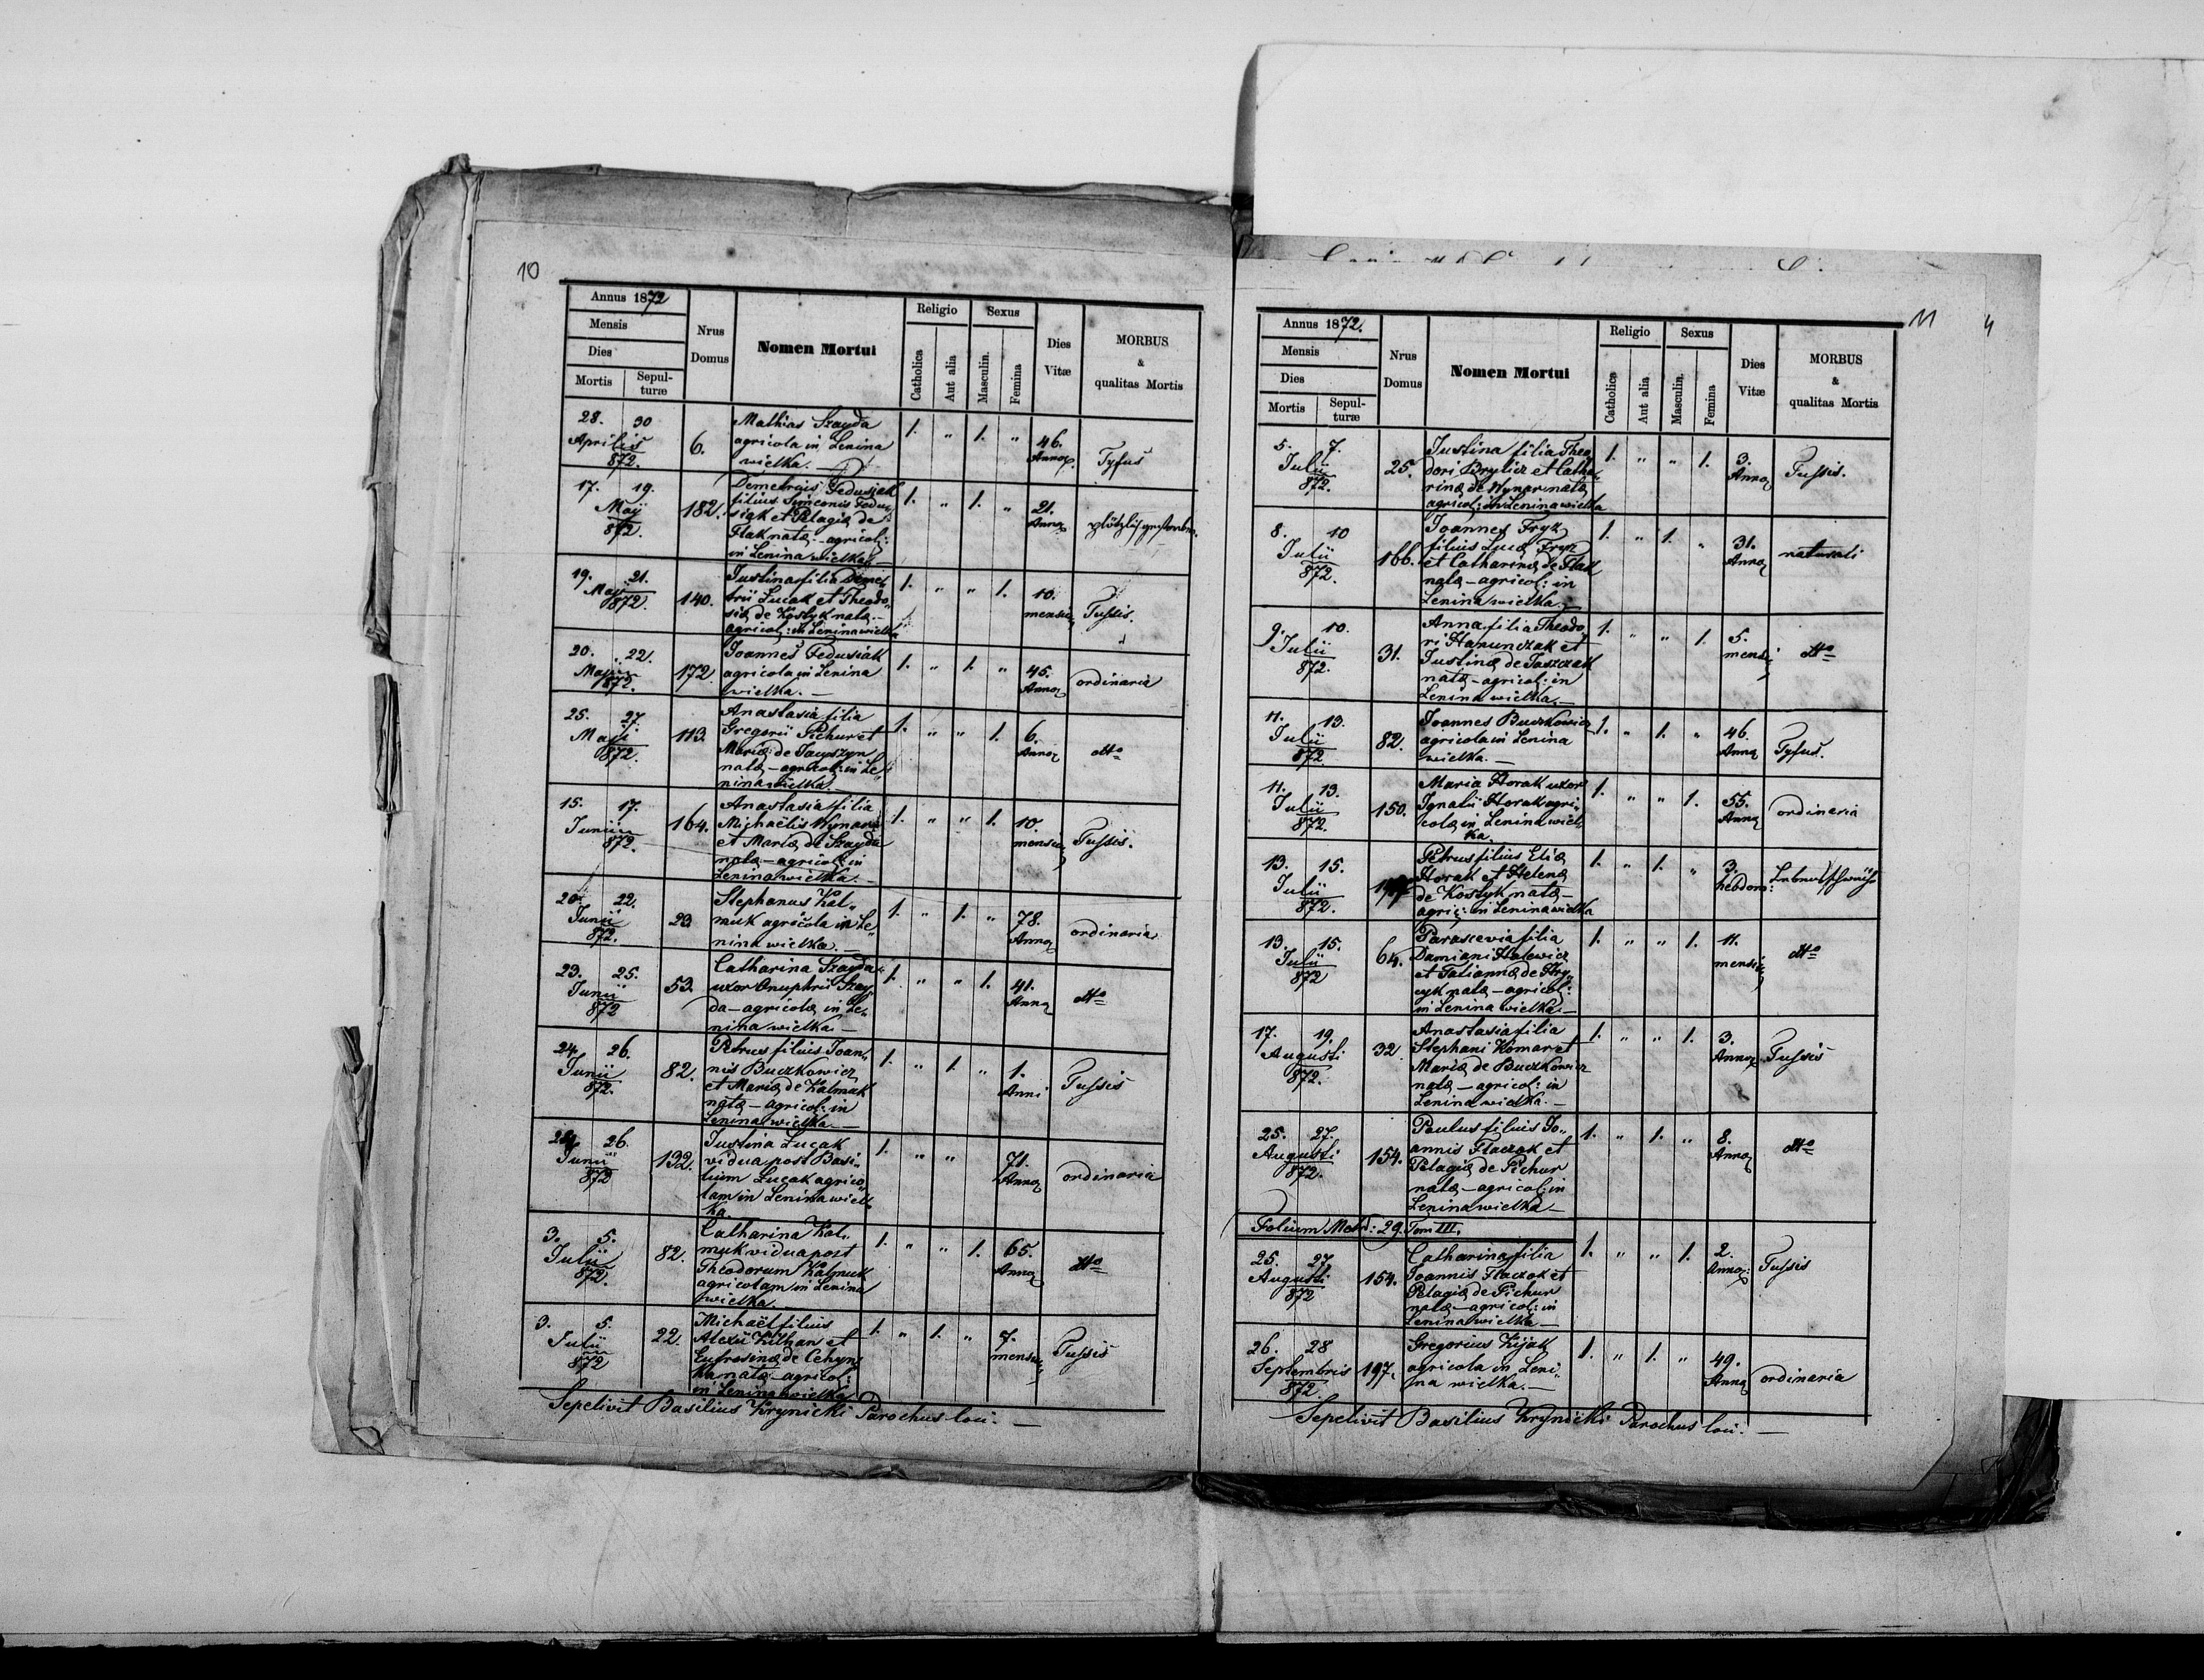 10
Annus 1872
Mensis
Dies
Mortis Sepul-
turæ
Nrus
Domus
Nomen Mortui
Religio
Catholica Aut alia
Sexus
Masculin. Femina
Dies
Vitæ
MORBUS
&
qualitas Mortis
28. 30 Aprilis 872. 6. Mathias Szayda 1. " 1. " 46. Annor. Tyfus
agricola in Lenina
wielka. —
17. 19. Maji 872. 182. Demetrius Fedusiak 1. " 1. " 21. Annor
filius Simeonis Fedu„
siak et Pelagiæ de
Flak natæ - agricol:
in Lenina wielka. —
19. 21. Maji 872. 140. Justina filia Deme„ 1. " " 1. 10. mensiu Tussis.
trii Lucak et Theodo„
siæ de Kostyk natæ -
agricol: in Lenina wielka
20. 22. Maji 1872. 172. Joannes Fedusiak 1. " 1. " 45. Annor ordinaria
agricola in Lenina
wielka. —
25. 27. Maji 1872. 113. Anastasia filia 1. " " 1. 6. Annor dtto
Gregorii Pichur et
Mariæ de
natæ - agricol: in Le„
nina wielka. —
15. 17. Junii 872. 164. Anastasia filia 1. " " 1. 10. mensiu Tussis.
Michaëlis Wynar
et Mariæ de Szayda
natæ - agricol: in
Lenina wielka. —
20. 22. Junii 872. 23 Stephanus Kal„ 1. " 1. " 78. Annor ordinaria
muk agricola in Le„
nina wielka. —
23. 25. Junii 872 53. Catharina Szayda 1. " " 1. 41. Annor dtto
uxor Onuphrii Szay„
da - agricolæ in Le„
nina wielka. —
24. 26. Junii 872. 82. Petrus filius Joan„ 1. " 1. " 1. Anni Tussis
nis Buczkowicz
et Mariæ de Kalmuk
natæ - agricol: in
Lenina wielka. —
24. 26. Junii 872 132. Justina Lucak 1. " " 71. Annor ordinaria
vidua post Basi„
lium Lucak agrico„
lam in Lenina wiel„
ka.
3. 5. Julii 872. 82. Catharina Kal„ 1. " " 1. 65. Annor dtto
muk vidua post
Theodorum Kalmuk
agricolam in Lenina
wielka. —
3. 5. Julii 872 22. Michaël filius 1. " 1. " 7. mensiu Tussis
Alexii Kilhan et
Eufrosinæ de Cehyn„
ka natæ - agricol:
in Lenina wielka
Sepelivit Basilius Krynicki Parochus loci. —
11
4
Annus 1872.
Mensis
Dies
Mortis Sepul-
turæ
Nrus
Domus
Nomen Mortui
Religio
Catholica Aut alia
Sexus
Masculin. Femina
Dies
Vitæ
MORBUS
&
qualitas Mortis
5. 7. Julii 872. 25. Justina filia Theo„ 1. " " 1. 3. Annor Tussis.
dori Brylicz et Catha„
rinæ de Wynar natæ
agricol: in Lenina wielka
8. 10 Julii 872. 166. Joannes Fryz 1. " 1. " 31. Annor naturali
filius Lucæ Fryz
et Catharinæ de Flak
natæ - agricol: in
Lenina wielka. —
9. 10. Julii 872. 31. Anna filia Theodo„ 1. " " 1. 5. mensiu dtto
ri Hanunczak et
Justinæ de Jaszczak
natæ - agricol: in
Lenina wielka. —
11. 13. Julii 872 82. Joannes Buczkowicz 1. " 1. " 46. Annor Tyfus.
agricola in Lenina
wielka. —
11. 13. Julii 872. 150. Maria Horak uxor 1. " " 1. 55. Annor ordinaria
Ignatii Horak agri„
colæ in Lenina wiel„
ka.
13. 15. Julii 872. Petrus filius Eliæ 1. " 1. " 3. hebdom: Lebensschwäche
Horak et Helenæ
de Kostyk natæ -
agric: in Lenina wielka
13. 15. Julii 872 64. Parascevia filia 1. " " 1. 11. mensiu dtto
Damiani Halewicz
et Tatiannæ de Hry„
cyk natæ - agricol:
in Lenina wielka. —
17. 19. Augusti 872. 32. Anastasia filia 1. " " 1. 3. Annor Tussis
Stephani Komar et
Mariæ de Buczkowicz
natæ - agricol: in
Lenina wielka. —
25. 27. Augusti 872. 154. Paulus filius Jo„ 1. " 1. " 8. Annor dtto
annis Flaczok et
Pelagiæ de Pichur
natæ - agricol: in
Lenina wielka —
Folium Metr: 29. Tom III.
25. 27. Augusti 872 154. Catharina filia 1. " " 1. 2. Annor: Tussis
Joannis Flaczok et
Pelagiæ de Pichur
natæ - agricol: in
Lenina wielka —
26. 28 Septembris 872. 197. Gregorius Kijak 1. " 1. " 49. Annor ordinaria
agricola in Leni„
na wielka. —
Sepelivit Basilius Krynicki Parochus loci. —